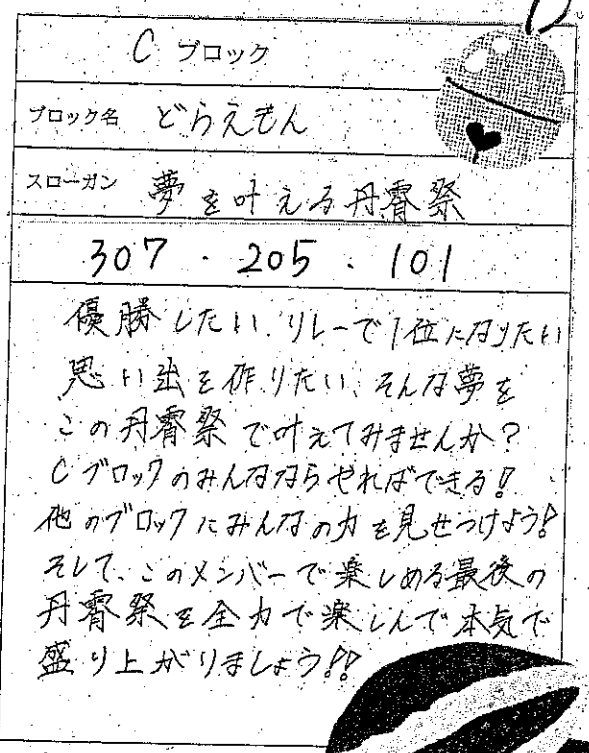 C ブロック
ブロック名 どらえもん
スローガン 夢を叶える丹霄祭
307・205・101
優勝したい、リレーで1位になりたい
思い出を作りたい、そんな夢を
この丹霄祭で叶えてみませんか?
Cブロックのみんなならやればできる!!
他のブロックにみんなの力を見せつけよう!!
そして、このメンバーで楽しめる最後の
丹霄祭を全力で楽しんで本気で
盛り上がりましょう!!